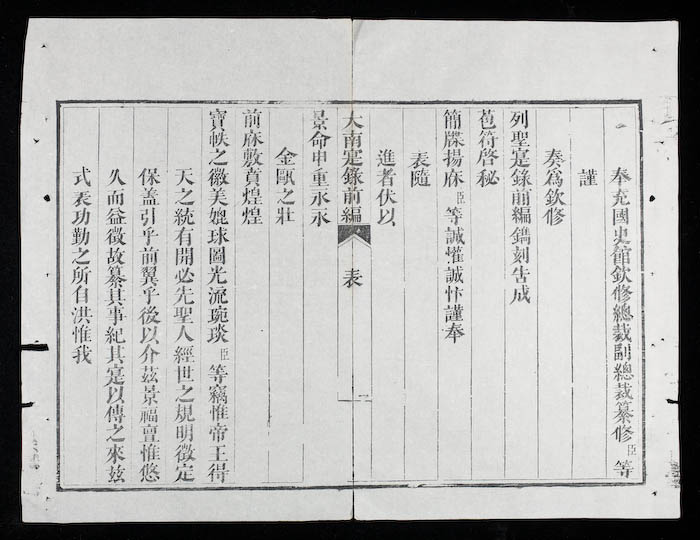 奉充國史館欽修總裁副總裁纂修臣等
謹
奏為欽修
列聖寔錄前編鐫刻告成
苞符啓秘
簡牒揚庥臣等誠懽誠忭謹奉
表隨
進者伏以
大南寔錄前編 表 一
景命申重永永
金甌之壯
前庥敷賁煌煌
寶帙之徽美媲球圖光流琬琰臣等竊惟帝王得
天之統有開必先聖人經世之規明徵定
保盖引乎前翼乎後以介茲景福亶惟悠
久而益徵故纂其事紀其寔以傳之來茲
式表功勤之所自洪惟我